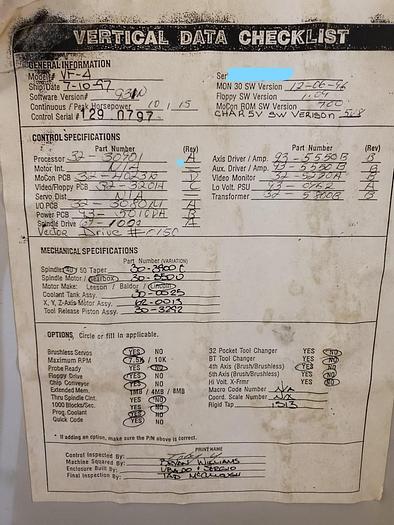 VERTICAL DATA CHECKLIST
GENERAL INFORMATION
Model# VF-4
Ship Date 7-10-97
Software Version#
Continuous / Peak Horsepower 10 , 15
Control Serial # 129 0797
Ser
MON 30 SW Version 12-06-95
Floppy SW Version 1.04
MoCon ROM SW Version
CHAR SV SW VERISON
CONTROL SPECIFICATIONS
Part Number (Rev)
Processor 32-3070 A
Motor Int. N/A
MoCon PCB D
Video/Floppy PCB 32-3201A C
Servo Dist N/A
I/O PCB A
Power PCB 93-5010 B
Spindle Drive A
Vector Drive # 0150
Part Number (Rev)
Axis Driver / Amp. 93-5550B B
Aux. Driver / Amp. 93-5550B B
Video Monitor B
Lo Volt. PSU A
Transformer B
MECHANICAL SPECIFICATIONS
Part Number (VARIATION)
Spindle 40 / 50 Taper
Spindle Motor / Gearbox 30-3500
Motor Make: Leeson / Baldor / Lincoln
Coolant Tank Assy. 30-0525
X, Y, Z-Axis Motor Assy. 62-0013
Tool Release Piston Assy. 30-3292
OPTIONS, Circle or fill in applicable.
Brushless Servos YES NO
Maximum RPM 7.5k / 10K
Probe Ready YES NO
Floppy Drive YES NO
Chip Conveyor YES NO
Extended Mem. 1MB / 4MB / 8MB
Thru Spindle Clnt. YES NO
1000 Blocks/Sec. YES NO
Prog. Coolant YES NO
Quick Code YES NO
32 Pocket Tool Changer YES NO
BT Tool Changer YES NO
4th Axis (Brush/Brushless) YES NO
5th Axis (Brush/Brushless) YES NO
Hi Volt. X-Frmr YES NO
Macro Code Number N/A
Coord. Scale Number N/A
Rigid Tap 1313
* If adding an option, make sure the P/N above is correct.
PRINT NAME
Control Inspected By:
Machine Squared By: BRYAN WILLIAMS
Enclosure Built By: UBALDO / SERGIO
Final Inspection By: TAD